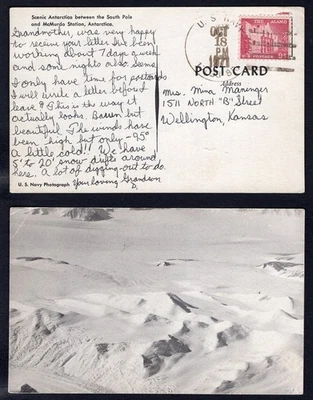 Scenic Antarctica between the South Pole
and McMurdo Station, Antarctica.
Grandmother, was very happy
to receive your letter. I've been
working about 7 days a week
and some nights also. Seems
I only have time for postcards
I will write a letter before I
leave? This is the way it
actually looks. Barren but
beautiful. The winds have
been high but only -95°
A little cold!! We have
5' to 20' snow drifts around
here. A lot of digging-out to do.
Your loving Grandson
D.
U. S. Navy Photograph
U. S.
OCT
18
PM
THE ALAMO
9¢
U.S. POSTAGE
POST CARD
Address
Mrs. Nina Marenger
1511 NORTH "B" Street
Wellington, Kansas